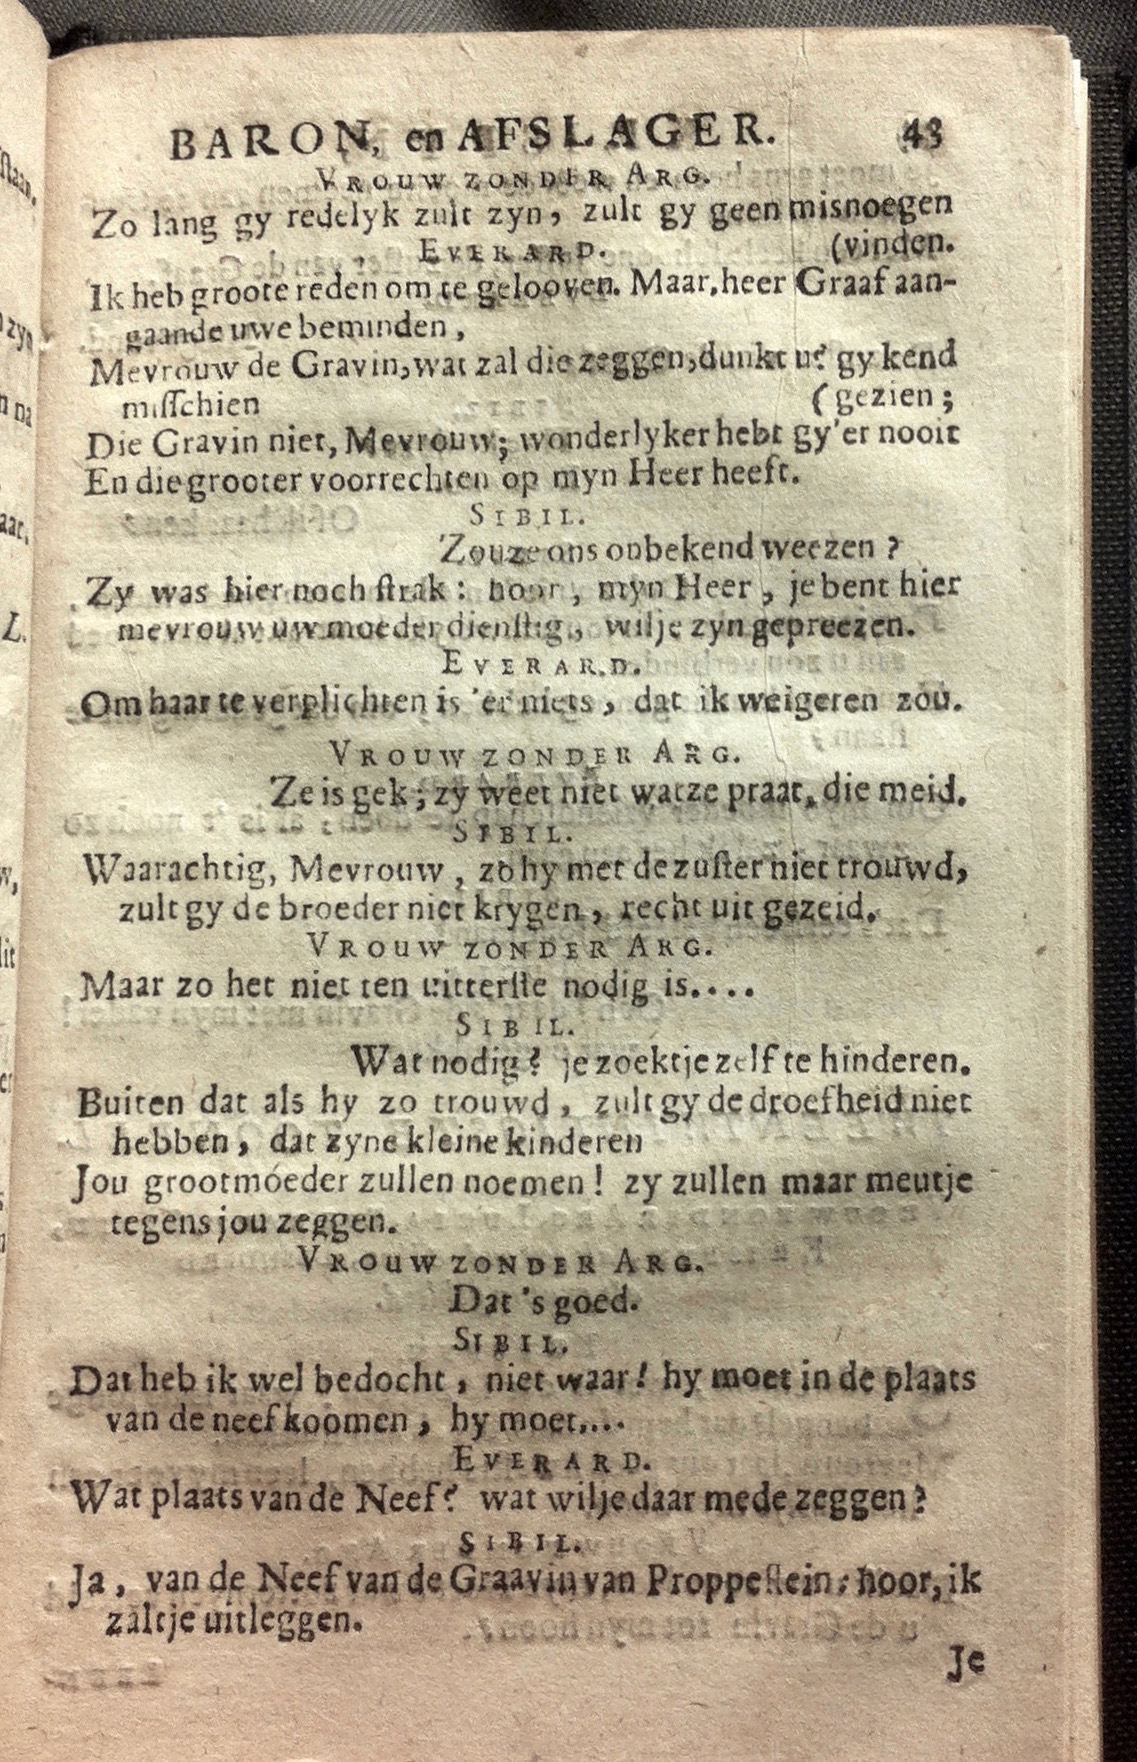 BARON, en AFSLAGER. 43
VROUW ZONDER ARG.
Zo lang gy redelyk zult zyn, zult gy geen misnoegen
EVERARD. (vinden.
Ik heb groote reden om te gelooven. Maar, heer Graaf aan-
gaande uwe beminden,
Mevrouw de Gravin, wat zal die zeggen, dunkt u? gy kend
misſchien (gezien;
Die Gravin niet, Mevrouw; wonderlyker hebt gy'er nooit
En die grooter voorrechten op myn Heer heeft.
SIBIL.
Zouze ons onbekend weezen?
Zy was hier noch ſtrak: hoor, myn Heer, je bent hier
mevrouw uw moeder dienſtig, wilje zyn gepreezen.
EVERARD.
Om haar te verplichten is 'er niets, dat ik weigeren zou.
VROUW ZONDER ARG.
Ze is gek; zy weet niet watze praat, die meid.
SIBIL.
Waarachtig, Mevrouw, zo hy met de zuſter niet trouwd,
zult gy de broeder niet krygen, recht uit gezeid.
VROUW ZONDER ARG.
Maar zo het niet ten uitterſte nodig is....
SIBIL.
Wat nodig? je zoekt je zelf te hinderen.
Buiten dat als hy zo trouwd, zult gy de droefheid niet
hebben, dat zyne kleine kinderen
Jou grootmóeder zullen noemen! zy zullen maar meutje
tegens jou zeggen.
VROUW ZONDER ARG.
Dat 's goed.
SIBIL.
Dat heb ik wel bedocht, niet waar! hy moet in de plaats
van de neef koomen, hy moet....
EVERARD.
Wat plaats van de Neef? wat wilje daar mede zeggen?
SIBIL.
Ja, van de Neef van de Graavin van Proppeſtein: hoor, ik
zaltje uitleggen.
Je